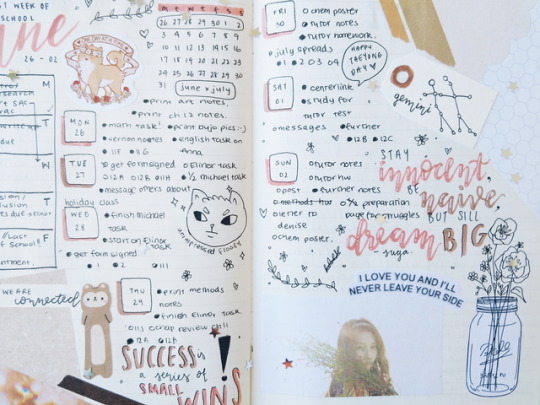 ST WEEK OF
SCHOOL
une
26 - 02
M
T
W
T
F
M T W T F S S
26 27 28 29 30 1 2
3 4 5 6 7 8 9
10 11 12 13 14 15 16
17 18 19 20 21 22 23
24 25 26 27 28 29 30
31
june x july
print art notes,
print ch 12 notes.
MON
26
math task!
print bujo pics :)
vernon notes
english task on
anna
11F
8G
TUE
27
get form signed
Elinor task
012A
012B
011H
½ michael task
message others about
holiday class
WED
28
finish Michael
task
start on Elinor
task
get form signed
1
2
11
unimpressed floofy
WE ARE
connected
THU
29
print methods
notes
finish Elinor task
12A
012B
SUCCESS is
a series of
SMALL
WINS!
FRI
30
chem poster
tutor notes
tutor homework.
july spreads
1 2 03 04
HAPPY
TAEYONG
DAY ♥
SAT
01
centerlink
study for
tutor test
messages
further
12B
12C
gemini
SUN
02
tutor notes
tutor hw
post
further notes
methods hw
¾ preparation
page for smuggles
denise
chem poster.
STAY
innocent,
BE
naive,
BUT STILL
dream BIG
- suga.
I LOVE YOU AND I'LL
NEVER LEAVE YOUR SIDE